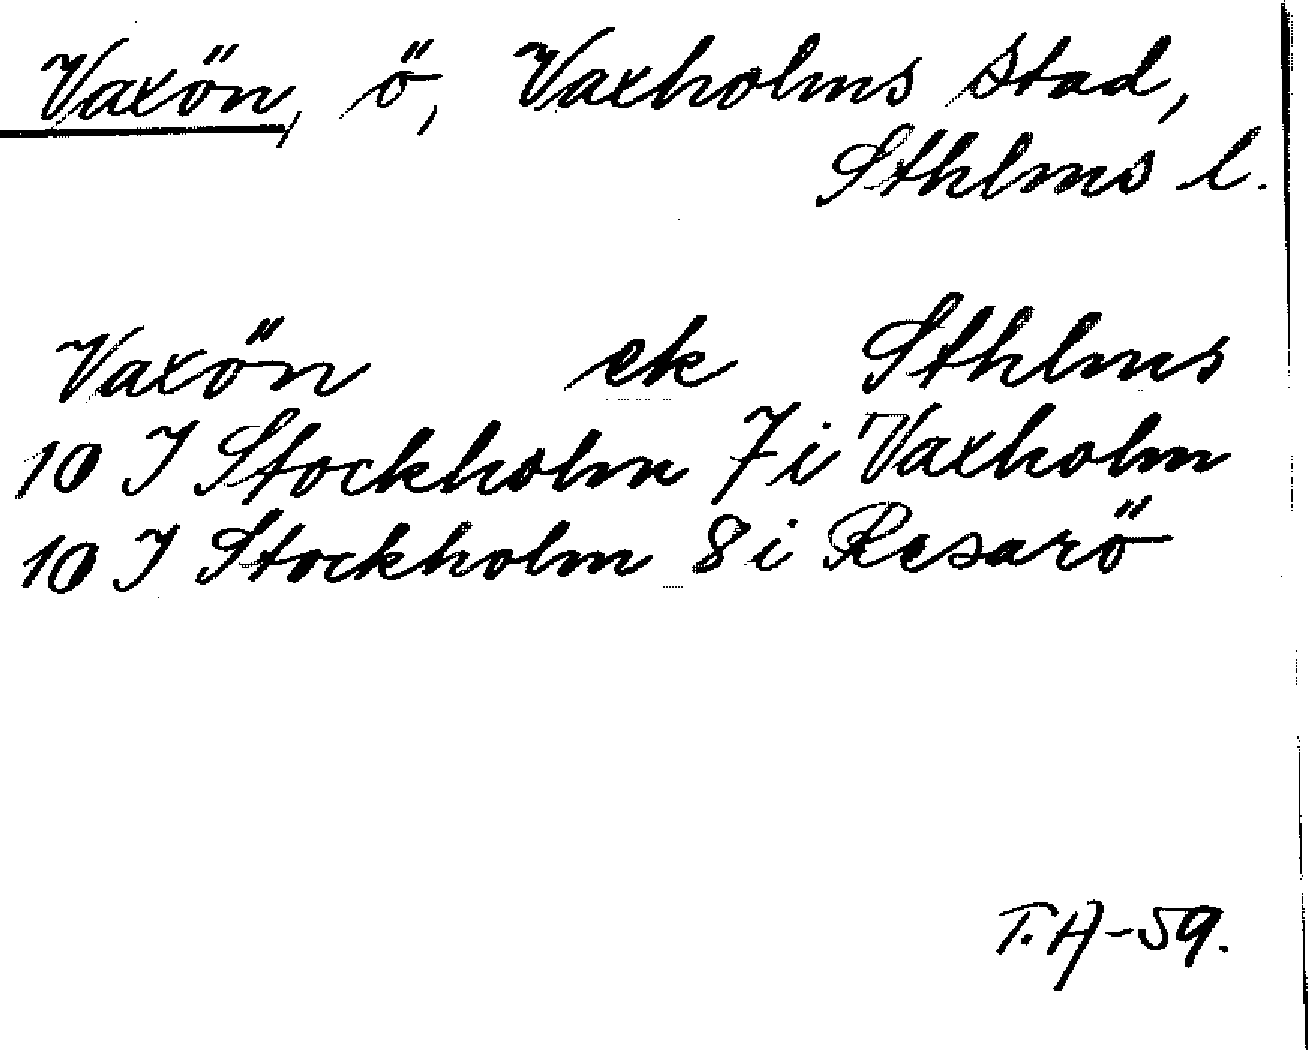 Vaxön, ö, Vaxholms stad,
Sthlms l.
Vaxön ek Sthlms
10 I Stockholm 7 i Vaxholm
10 I Stockholm 8 i Resarö
T.A-59.